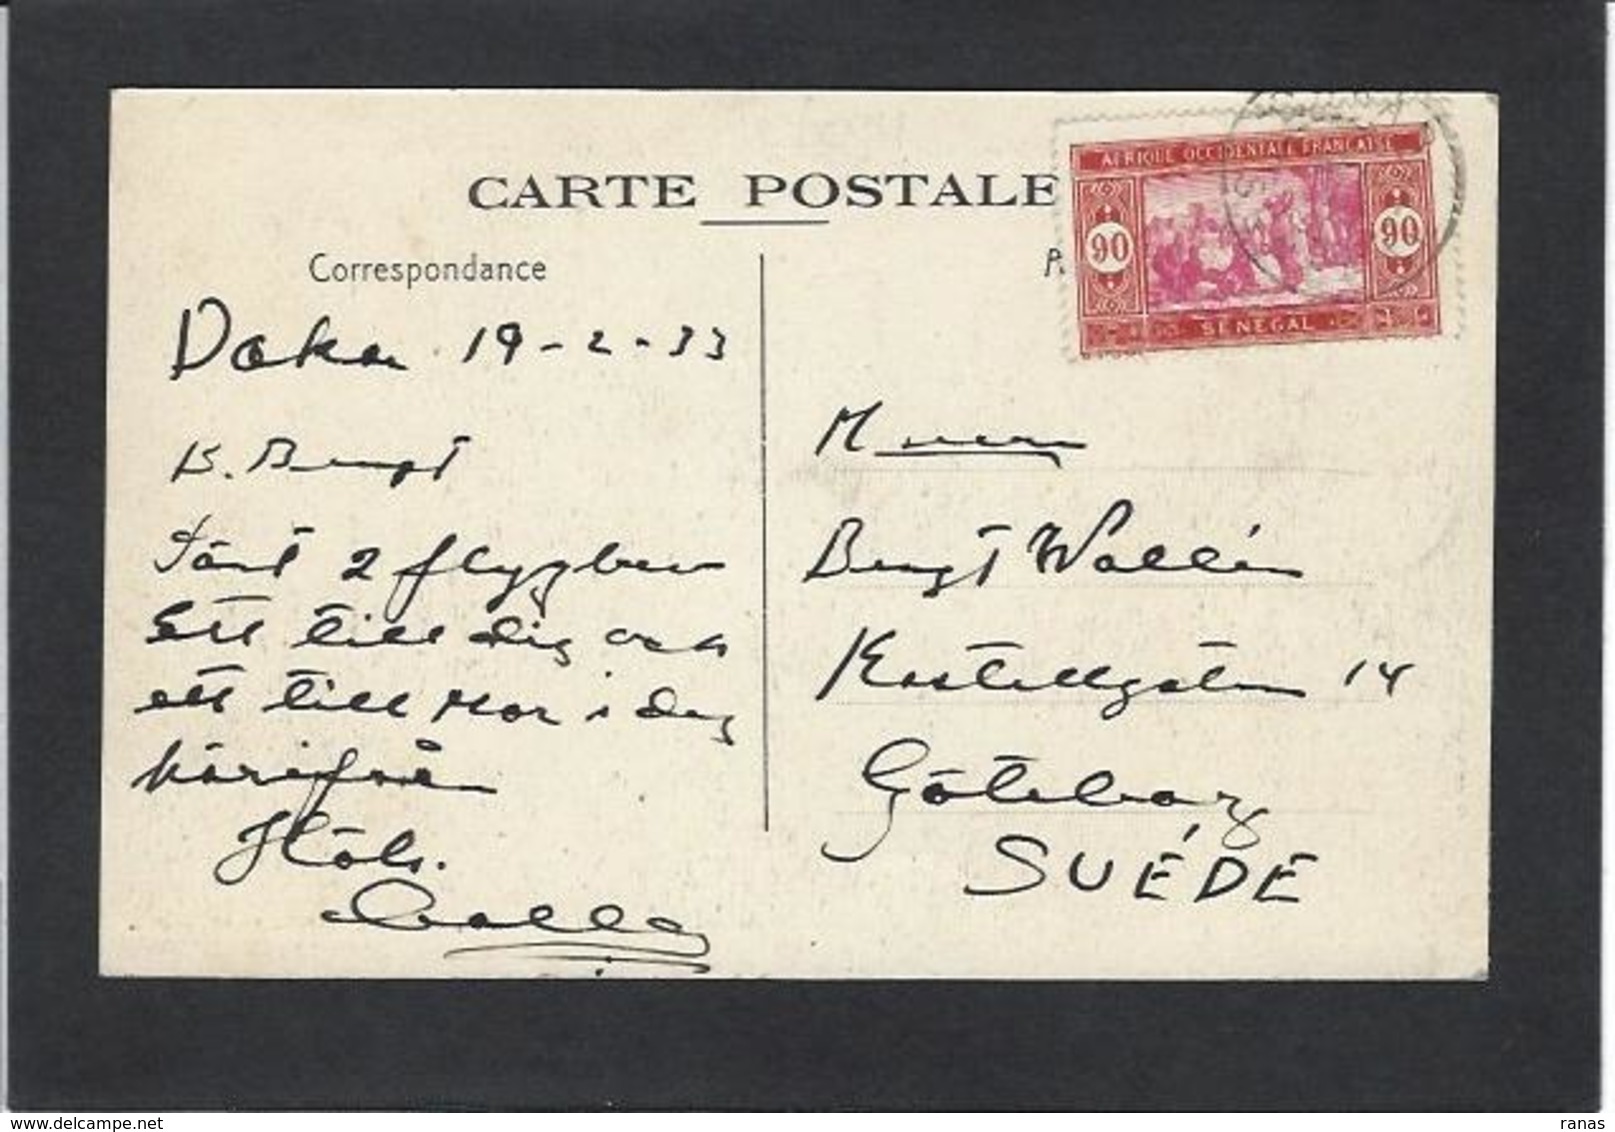 CARTE POSTALE
Correspondance
AFRIQUE OCCIDENTALE FRANCAISE
90 90
SENEGAL
Dakar 19-2-33
B. Bengt
Sänt 2 flygbrev
Ett till dig och
ett till Mor i dag
härifrån
Bengt Wallén
Kastellgatan 14
Göteborg
SUÉDE
© delcampe.net
ranas